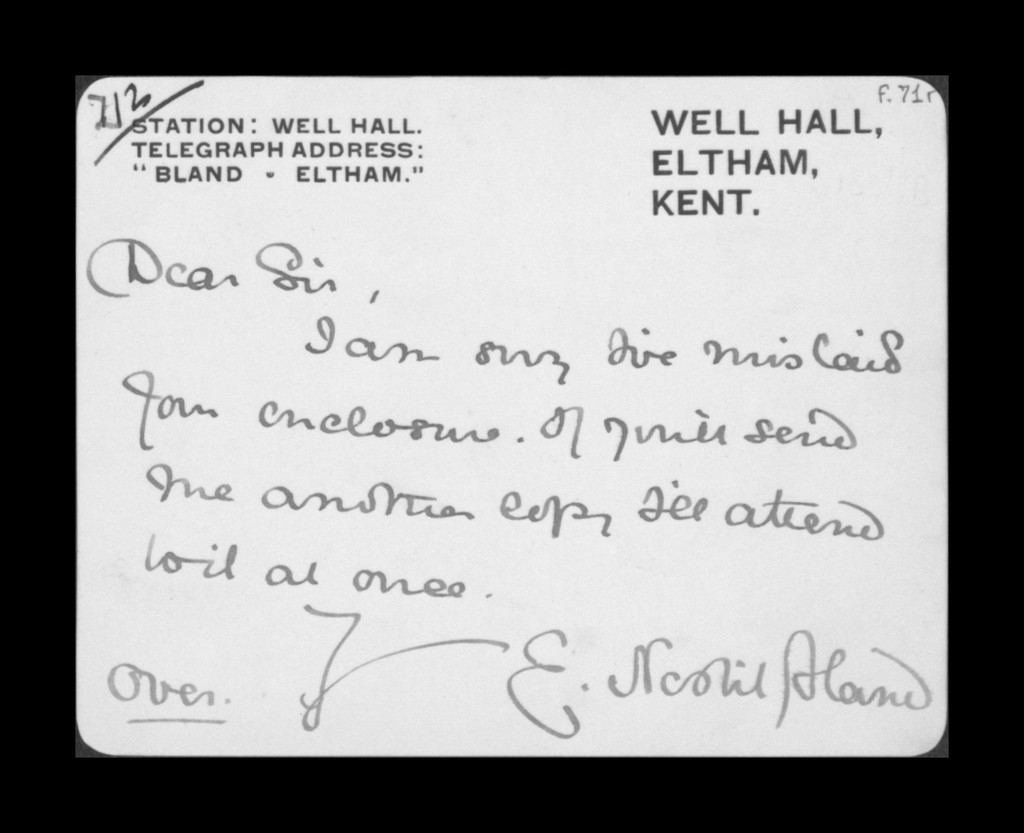 7/2
f. 71r
STATION: WELL HALL.
TELEGRAPH ADDRESS:
"BLAND - ELTHAM."
WELL HALL,
ELTHAM,
KENT.
Dear Sir,
I am sorry I've mislaid
your enclosure. If you'll send
me another copy I'll attend
to it at once.
Y
E. Nesbit Bland
Over.